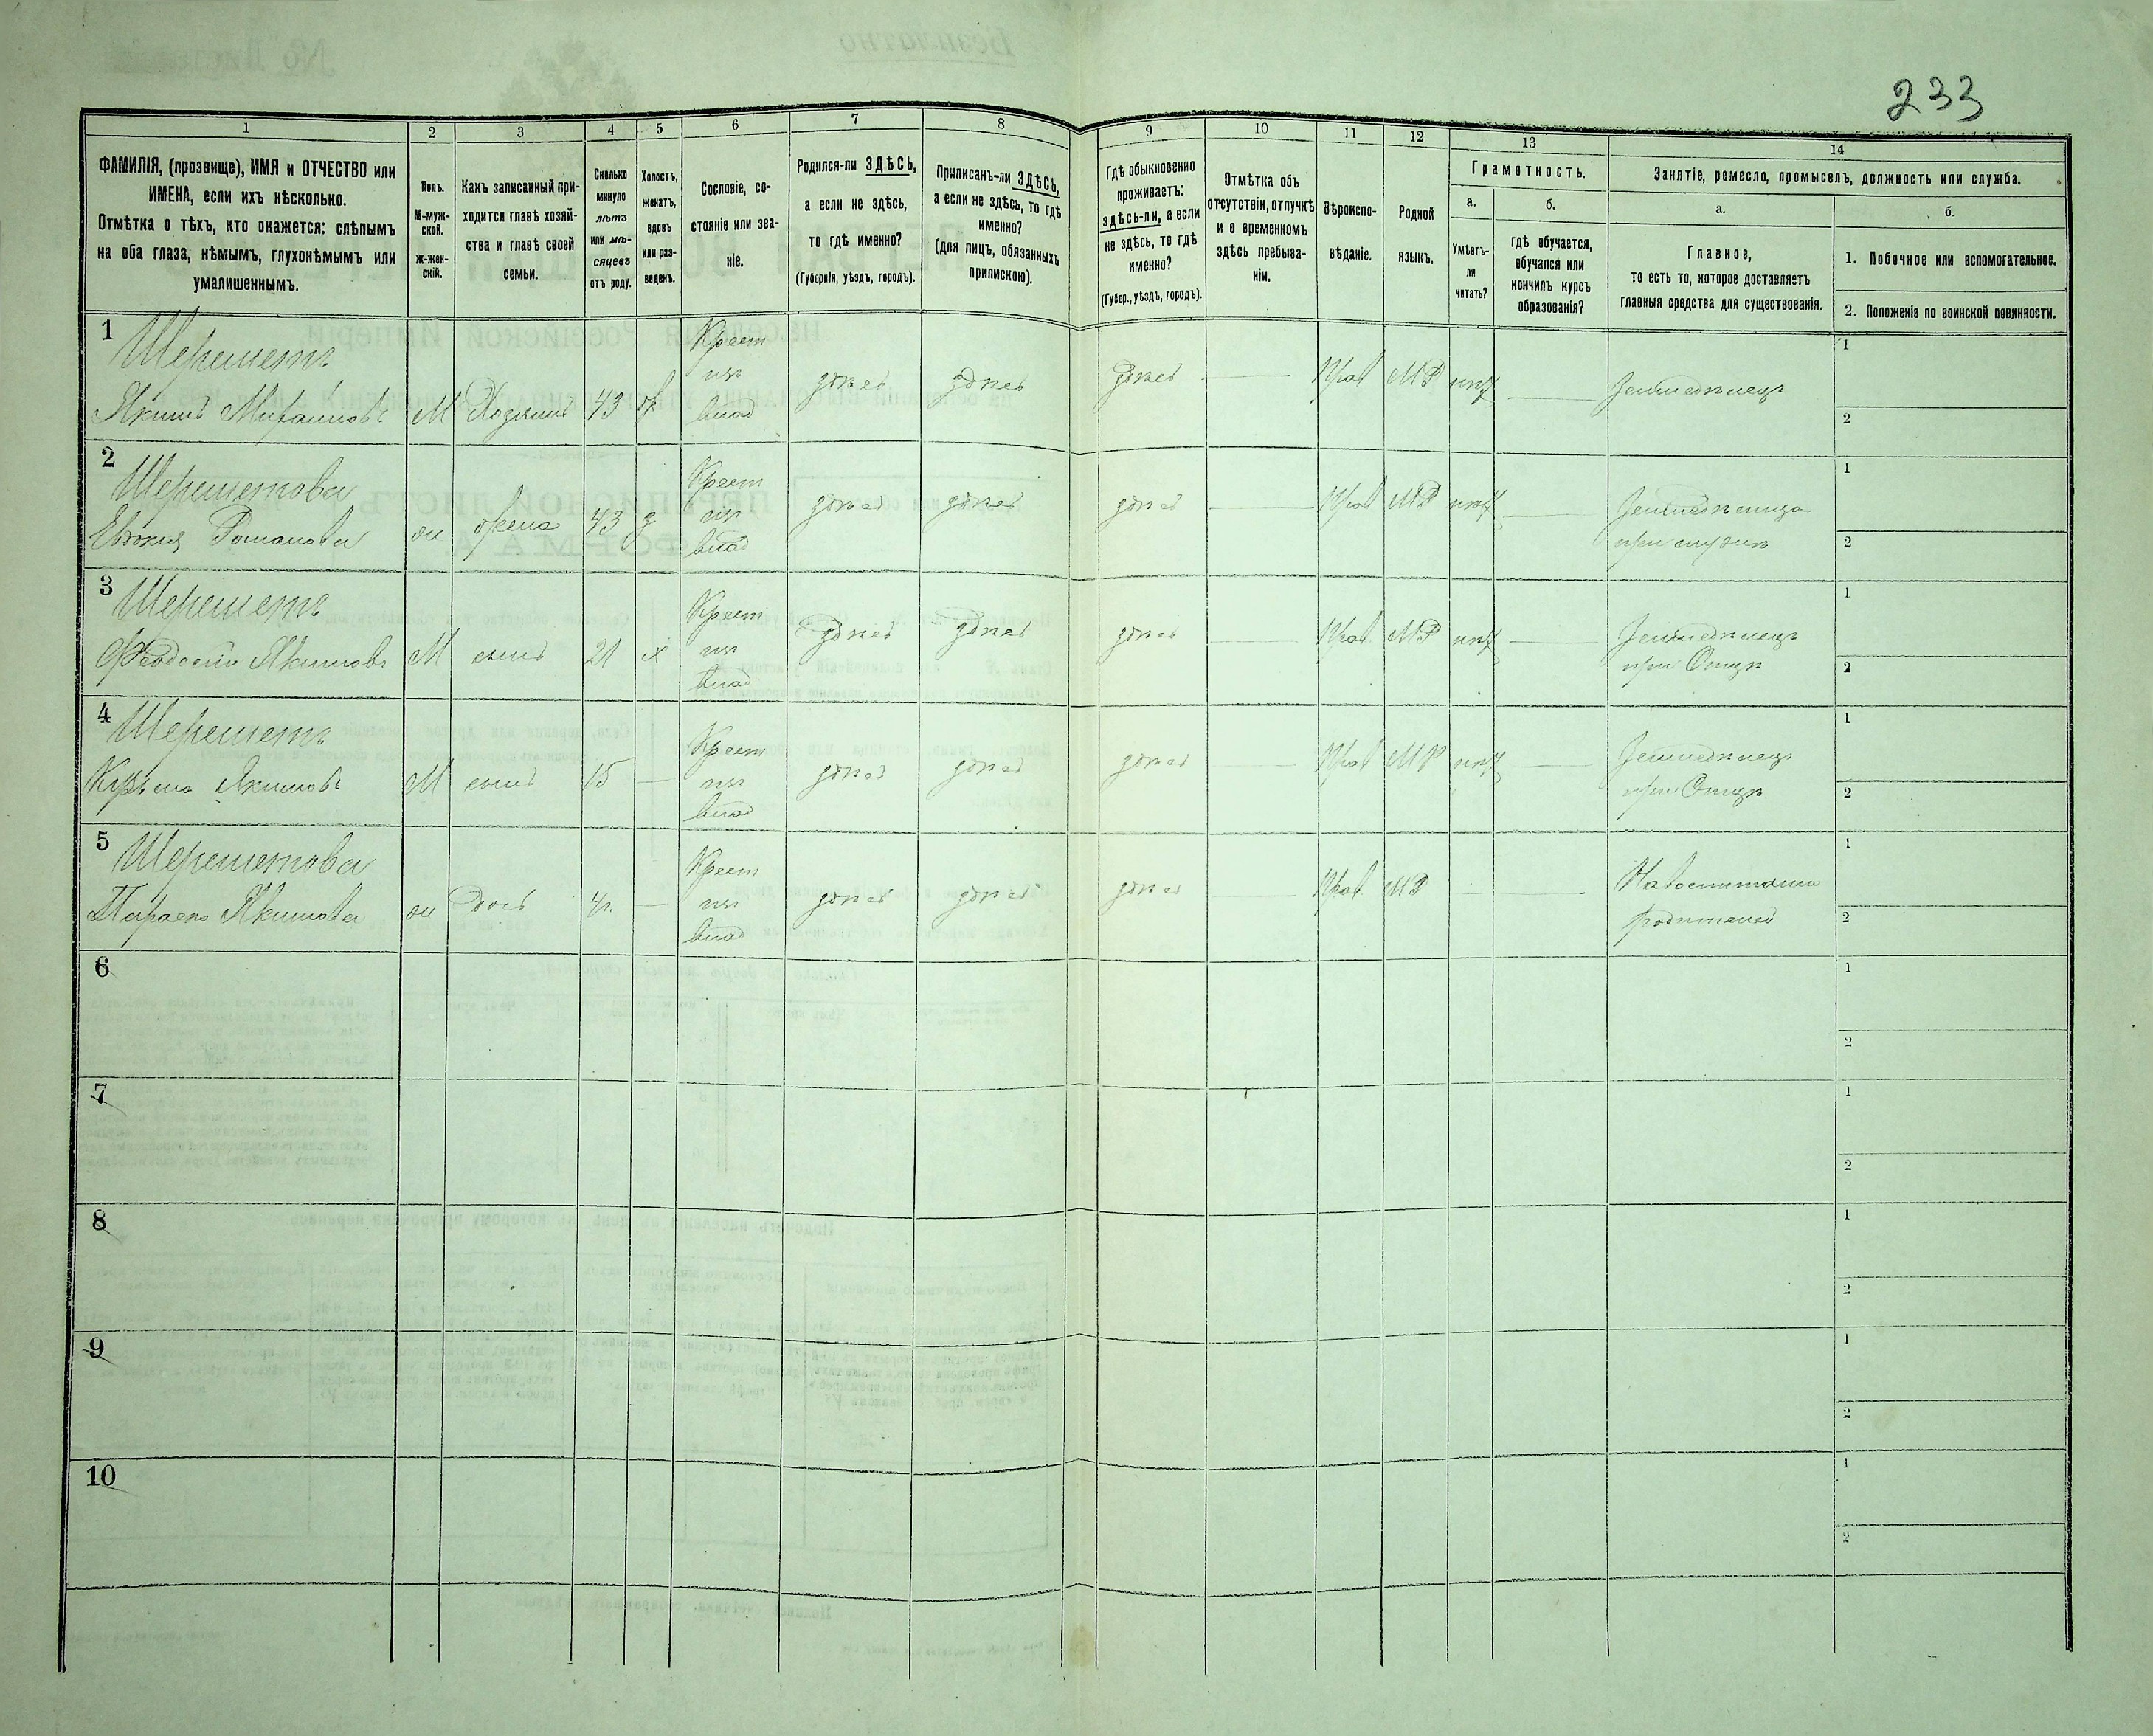 233
1 2 3 4 5 6 7 8 9 10 11 12 13 14
ФАМИЛІЯ, (прозвище), ИМЯ и ОТЧЕСТВО или
ИМЕНА, если ихъ нѣсколько.
Отмѣтка о тѣхъ, кто окажется: слѣпымъ
на оба глаза, нѣмымъ, глухонѣмымъ или
умалишеннымъ.
Полъ.
М-муж-
ской.
ж-жен-
скій.
Какъ записанный при-
ходится главѣ хозяй-
ства и главѣ своей
семьи.
Сколько
минуло
лѣтъ
или мѣ-
сяцевъ
отъ роду.
Холостъ,
женатъ,
вдовъ
или раз-
веденъ.
Сословіе, со-
стояніе или зва-
ніе.
Родился-ли ЗДѢСЬ,
а если не здѣсь,
то гдѣ именно?
(Губернія, уѣздъ, городъ).
Приписанъ-ли ЗДѢСЬ,
а если не здѣсь, то гдѣ
именно?
(для лицъ, обязанныхъ
припискою).
Гдѣ обыкновенно
проживаетъ:
здѣсь-ли, а если
не здѣсь, то гдѣ
именно?
(Губер., уѣздъ, городъ).
Отмѣтка объ
отсутствіи, отлучкѣ
и о временномъ
здѣсь пребыва-
ніи.
Вѣроиспо-
вѣданіе.
Родной
языкъ.
Грамотность.
а.
Умѣетъ-
ли
читать?
б.
гдѣ обучается,
обучался или
кончилъ курсъ
образованія?
Занятіе, ремесло, промыселъ, должность или служба.
а.
Главное,
то есть то, которое доставляетъ
главныя средства для существованія.
б.
1. Побочное или вспомогательное.
2. Положеніе по воинской повинности.
1
Шереметъ
Якимъ М
Хозяинъ
43
ж
Крест
изъ
влад
здѣсь
здѣсь
здѣсь
Прав
МР
нѣт
Земледѣлецъ
1
2
2
Шереметова
Евдокия Романова
ж
жена
43
з
Крест
изъ
влад
здѣсь
здѣсь
здѣсь
Прав
МР
нѣт
Земледѣлица
при мужѣ
1
2
3
Шереметъ
Феодосий Якимовъ
М
сынъ
21
х
Крест
изъ
влад
здѣсь
здѣсь
здѣсь
Прав
МР
нѣт
Земледѣлецъ
при Отцѣ
1
2
4
Шереметъ
Кузьма Якимовъ
М
сынъ
15
Крест
изъ
влад
здѣсь
здѣсь
здѣсь
Прав
МР
нѣт
Земледѣлецъ
при Отцѣ
1
2
5
Шереметова
Параска Якимова
ж
дочь
Крест
изъ
влад
здѣсь
здѣсь
здѣсь
Прав
МР
родителей
1
2
6
1
2
7
1
2
8
1
2
9
1
2
10
1
2